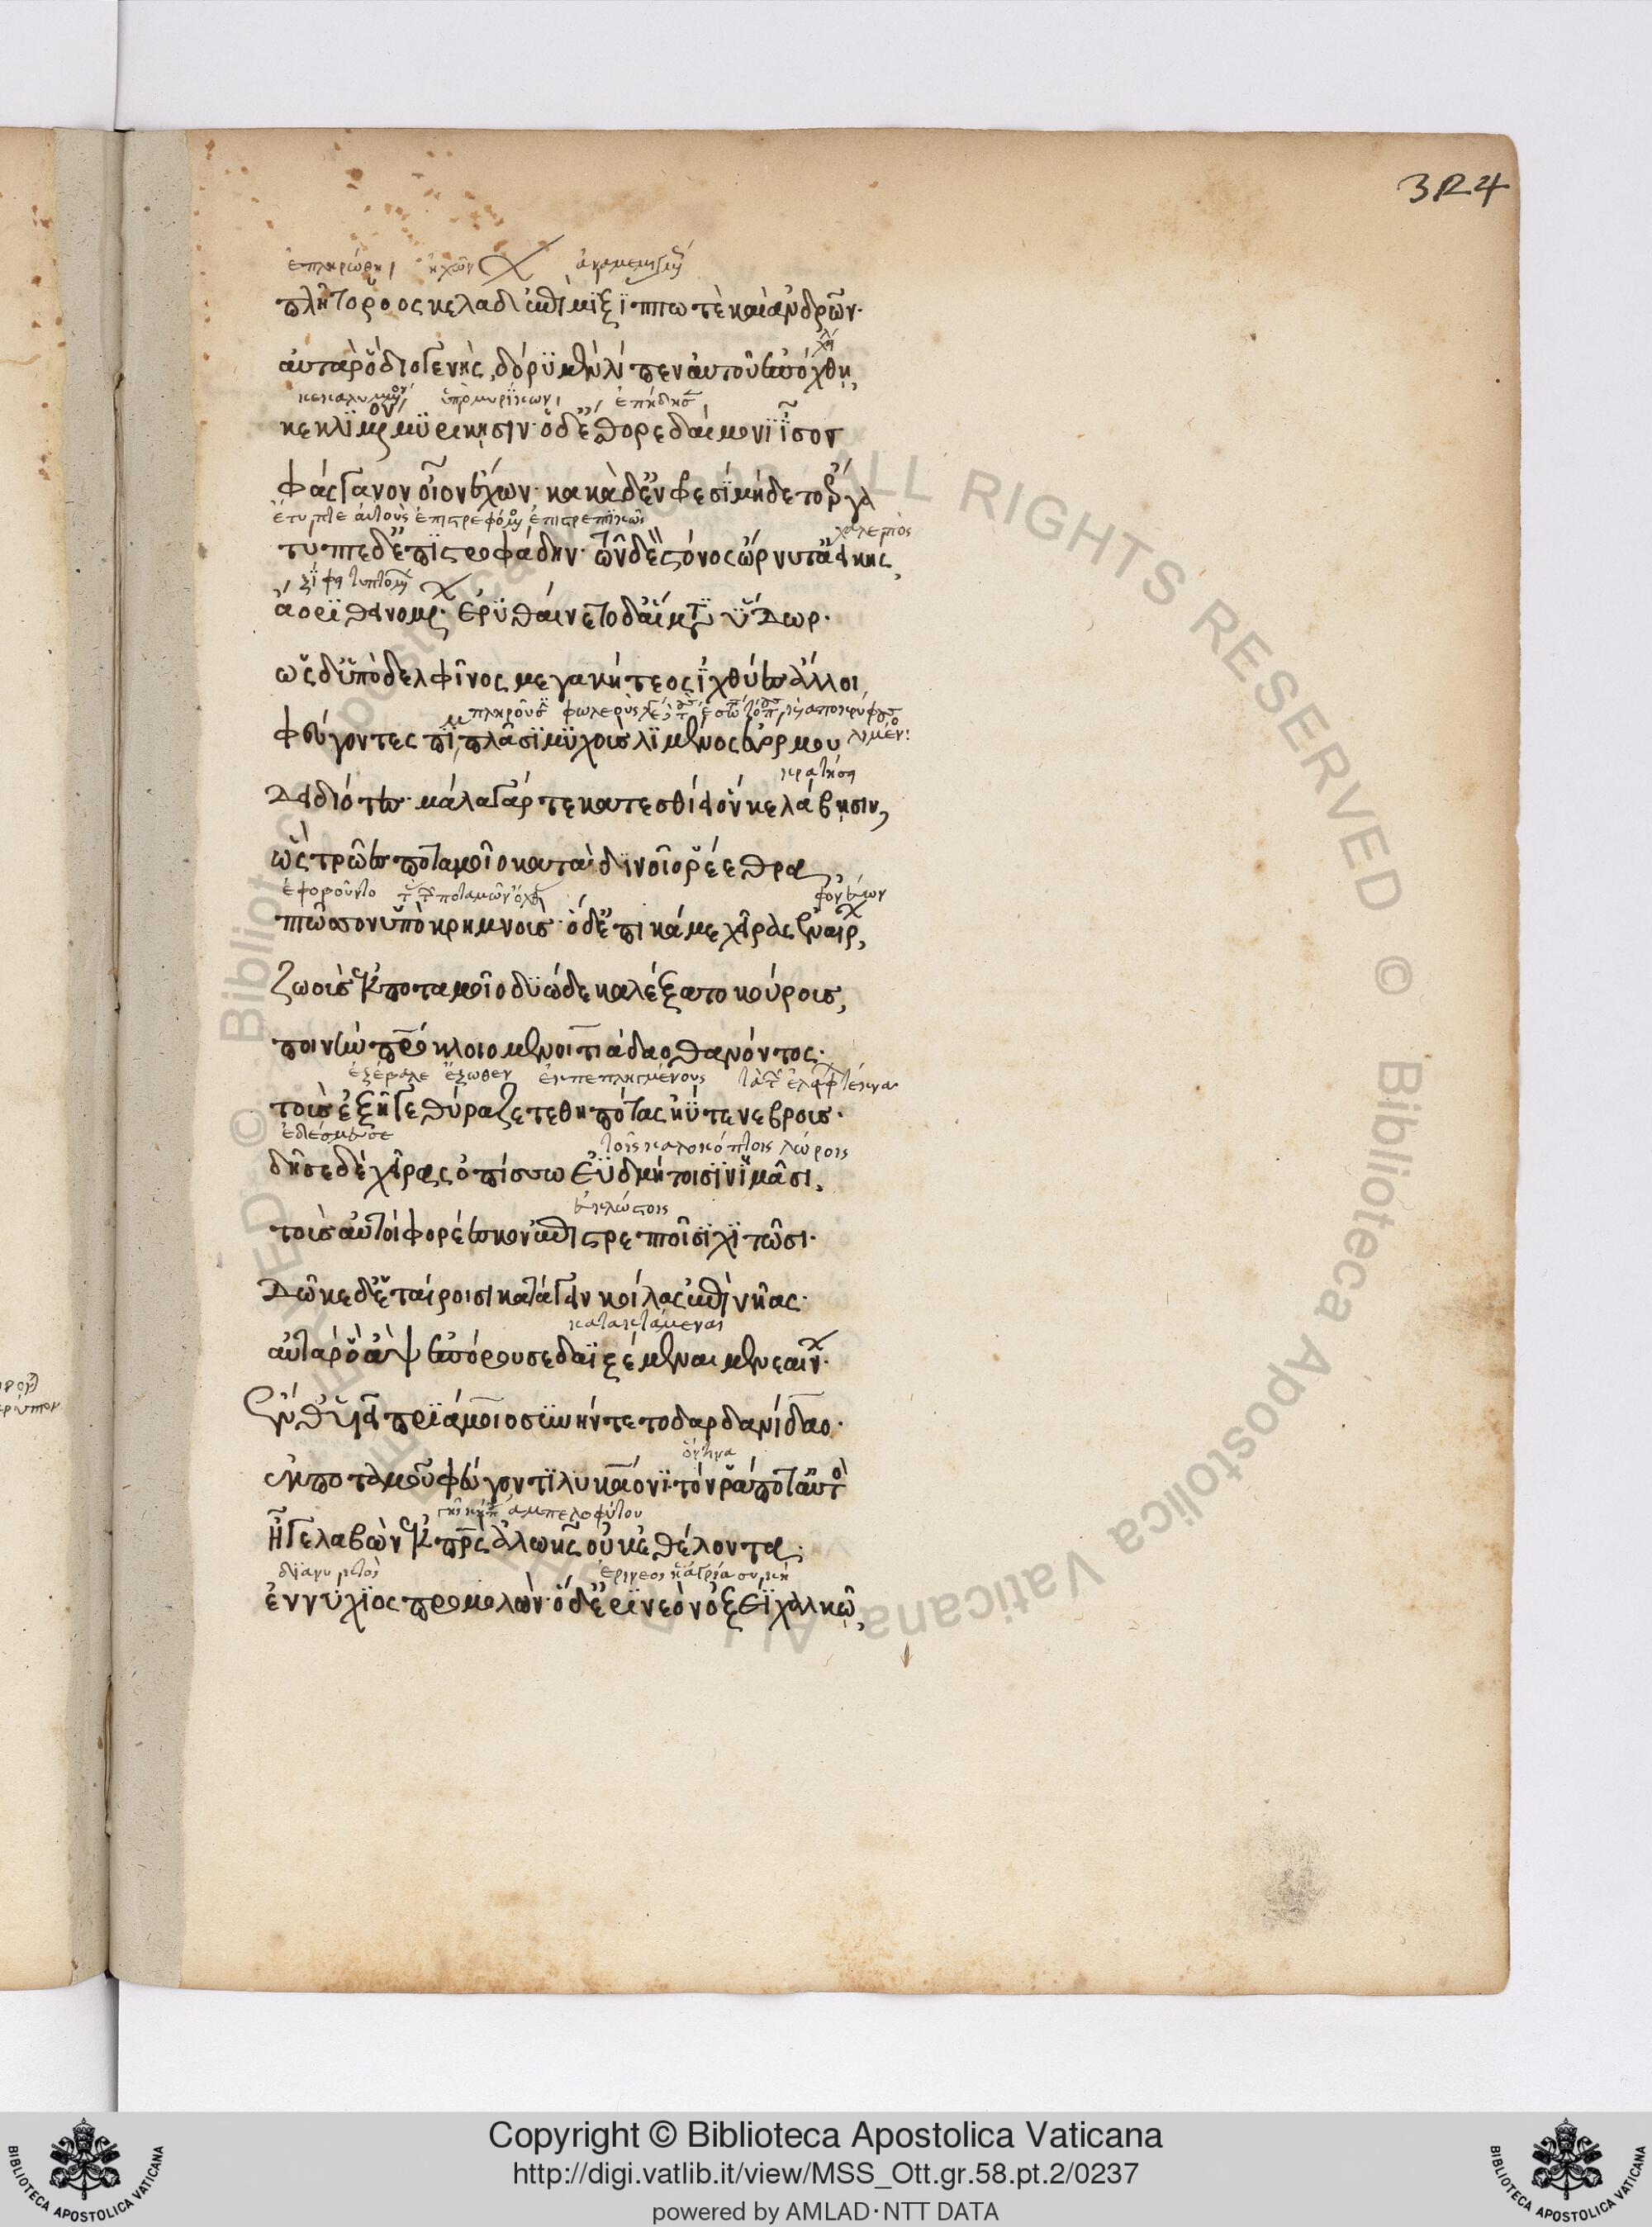 324
ἐπληρώθη ἠχῶν ἀναμεμιγμένως
πλῆτο ῥόος κελάδων ἐπιμὶξ ἵππων τὲ καὶ ἀνδρῶν·
αὐτὰρ ὃ διογενὴς, δόρυ μὲν λίπεν αὐτοῦ ἐπ' ὄχθῃ,
ἐπήδησε
κεκλιμένον μυρίκῃσιν· ὃ δ' ἔνθορε δαίμονι ἶσος
φάσγανον οἶον ἔχων· κακὰ δὲ φρεσὶ μήδετο ἔργα
ἔτυπτε αὐτοὺς χαλεπὸς
τύπτε δ' ἐπιστροφάδην· τῶν δὲ στόνος ὤρνυτ' ἀεικὴς,
ἄορι θεινομένων· ἐρυθαίνετο δ' αἵματι ὕδωρ·
ὡς δ' ὑπὸ δελφῖνος μεγακήτεος ἰχθύες ἄλλοι
φεύγοντες πιμπλᾶσι μυχοὺς λιμένος εὐόρμου
κρατήσῃ
δειδιότες· μάλα γάρ τε κατεσθίει ὅν κε λάβῃσιν,
ὣς τρῶες ποταμοῖο κατὰ δεινοῖο ῥέεθρα,
ἐφοβοῦντο φονεύων
πτῶσσον ὑπὸ κρημνούς· ὃ δ' ἐπεὶ κάμε χεῖρας ἐναίρων,
ζωοὺς ἐκ ποταμοῖο δυώδεκα λέξατο κούρους,
ποινὴν πατρόκλοιο μενοιτιάδαο θανόντος·
ἐξέβαλε ἔξωθεν ἐκπεπληγμένους
τοὺς ἐξῆγε θύραζε τεθηπότας ἠΰτε νεβρούς·
ἐδέσμευσε τοῖς καλοκόπτοις λώροις
δῆσε δὲ χεῖρας ὀπίσσω ἐϋδμήτοισιν ἱμᾶσι,
εὐκλώστοις
τοὺς αὐτοὶ φορέεσκον ἐπὶ στρεπτοῖσι χιτῶσι·
δῶκε δ' ἑταίροισι κατάγειν κοίλας ἐπὶ νῆας·
κατακτάμεναι
αὐτὰρ ὃ ἂψ ἐπόρουσε δαϊζέμεναι μενεαίνων·
ἔνθ' υἷι πριάμοιο συνήντετο δαρδανίδαο·
ὅντινα
ἐκ ποταμοῦ φεύγοντι λυκάονι· τόν ῥά ποτ' αὐτὸς
ἀμπελοφύτου
ἦγε λαβὼν ἐκ πατρὸς ἀλωῆς οὐκ ἐθέλοντα,
ἐννύχιος προμολών· ὃ δ' ἐρινεὸν ὀξέϊ χαλκῷ,
Copyright © Biblioteca Apostolica Vaticana
http://digi.vatlib.it/view/MSS_Ott.gr.58.pt.2/0237
powered by AMLAD·NTT DATA